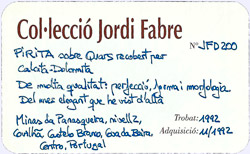 Col·lecció Jordi Fabre
Nº JFD200
PIRITA sobre Quars recobert per
Calcita-Dolomita
De molta qualitat: perfecció, forma i morfologia
Del mes elegant que he vist d'alla
Minas da Panasqueira, nivell 2,
Covilhã, Castelo Branco, Cova da Beira,
Centro, Portugal
Trobat: 1992
Adquisició: 11/1992